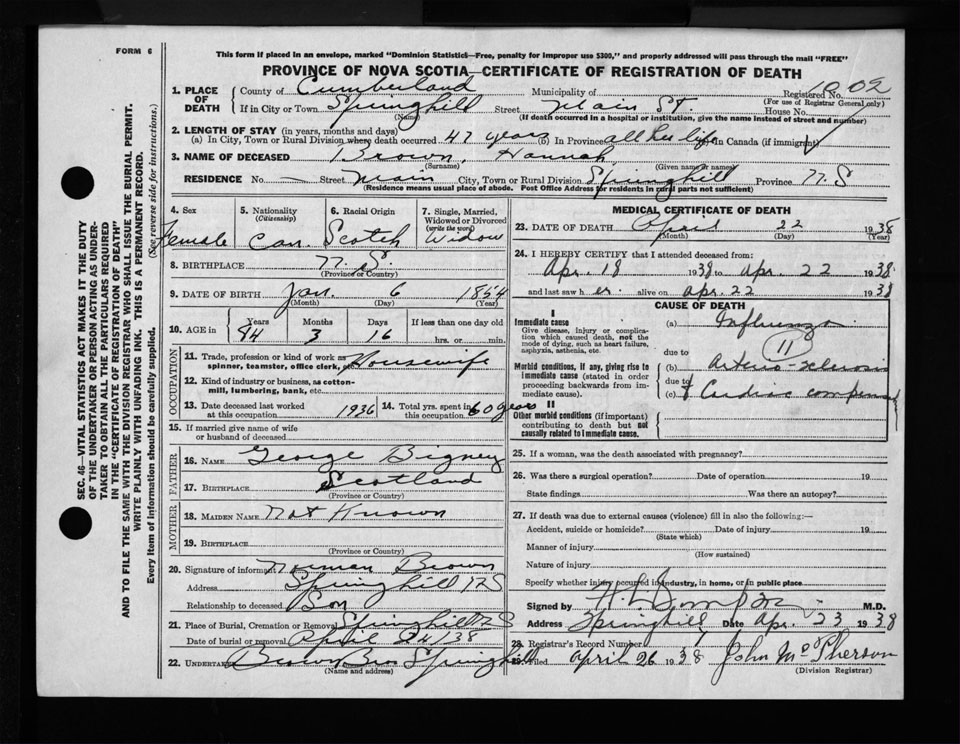 FORM 6
This form if placed in an envelope, marked "Dominion Statistics—Free, penalty for improper use $300," and properly addressed will pass through the mail "FREE"
PROVINCE OF NOVA SCOTIA—CERTIFICATE OF REGISTRATION OF DEATH
1. PLACE OF DEATH
County of Cumberland Municipality of Registered No. 02
(For use of Registrar General only)
If in City or Town Springhill Street Main St. House No.
(Name) (If death occurred in a hospital or institution, give the name instead of street and number)
2. LENGTH OF STAY (in years, months and days)
(a) In City, Town or Rural Division where death occurred 47 years (b) In Province all her life (c) In Canada (if immigrant)
3. NAME OF DECEASED Brown, Hannah,
(Surname) (Given name or names)
RESIDENCE No. — Street Main City, Town or Rural Division Springhill Province N.S
(Residence means usual place of abode. Post Office Address for residents in rural parts not sufficient)
4. Sex Female
5. Nationality (Citizenship) Can.
6. Racial Origin Scotch
7. Single, Married, Widowed or Divorced (write the word) Widow
8. BIRTHPLACE N.S.
(Province or Country)
9. DATE OF BIRTH Jan. 6 1854
(Month) (Day) (Year)
10. AGE in Years Months Days If less than one day old
84 3 16 hrs. or min.
OCCUPATION
11. Trade, profession or kind of work as spinner, teamster, office clerk, etc. Housewife
12. Kind of industry or business, as cotton-mill, lumbering, bank, etc.
13. Date deceased last worked at this occupation 1936
14. Total yrs. spent in this occupation 60 years
15. If married give name of wife or husband of deceased
FATHER
16. NAME George Bigney
17. BIRTHPLACE Scotland
(Province or Country)
MOTHER
18. MAIDEN NAME Not Known
19. BIRTHPLACE
(Province or Country)
20. Signature of informant Norman Brown
Address Springhill NS
Relationship to deceased Son
21. Place of Burial, Cremation or Removal Springhill NS
Date of burial or removal April 24/38
22. UNDERTAKER Brown Bros Springhill
(Name and address)
MEDICAL CERTIFICATE OF DEATH
23. DATE OF DEATH April 22 1938
(Month) (Day) (Year)
24. I HEREBY CERTIFY that I attended deceased from:
Apr. 18 1938 to Apr. 22 1938
and last saw her alive on Apr. 22 1938
CAUSE OF DEATH
I
Immediate cause
Give disease, injury or complication which caused death, not the mode of dying, such as heart failure, asphyxia, asthenia, etc.
(a) Influenza
11
due to
Morbid conditions, if any, giving rise to immediate cause (stated in order proceeding backwards from immediate cause).
(b) Arterio-sclerosis
due to
(c) Cardiac
II
Other morbid conditions (if important) contributing to death but not causally related to immediate cause.
25. If a woman, was the death associated with pregnancy?
26. Was there a surgical operation? Date of operation 19
State findings Was there an autopsy?
27. If death was due to external causes (violence) fill in also the following:—
Accident, suicide or homicide? Date of injury 19
(State which)
Manner of injury
(How sustained)
Nature of injury
Specify whether injury occurred in industry, in home, or in public place
Signed by M.D.
Address Springhill Date Apr. 23 1938
28. Registrar's Record Number
29. Filed April 26 1938 John McPherson
(Division Registrar)
SEC. 46—VITAL STATISTICS ACT MAKES IT THE DUTY
OF THE UNDERTAKER OR PERSON ACTING AS UNDER-
TAKER TO OBTAIN ALL THE PARTICULARS REQUIRED
IN THE "CERTIFICATE OF REGISTRATION OF DEATH"
AND TO FILE THE SAME WITH THE DIVISION REGISTRAR WHO SHALL ISSUE THE BURIAL PERMIT.
WRITE PLAINLY WITH UNFADING INK. THIS IS A PERMANENT RECORD.
Every item of information should be carefully supplied. (See reverse side for instructions.)